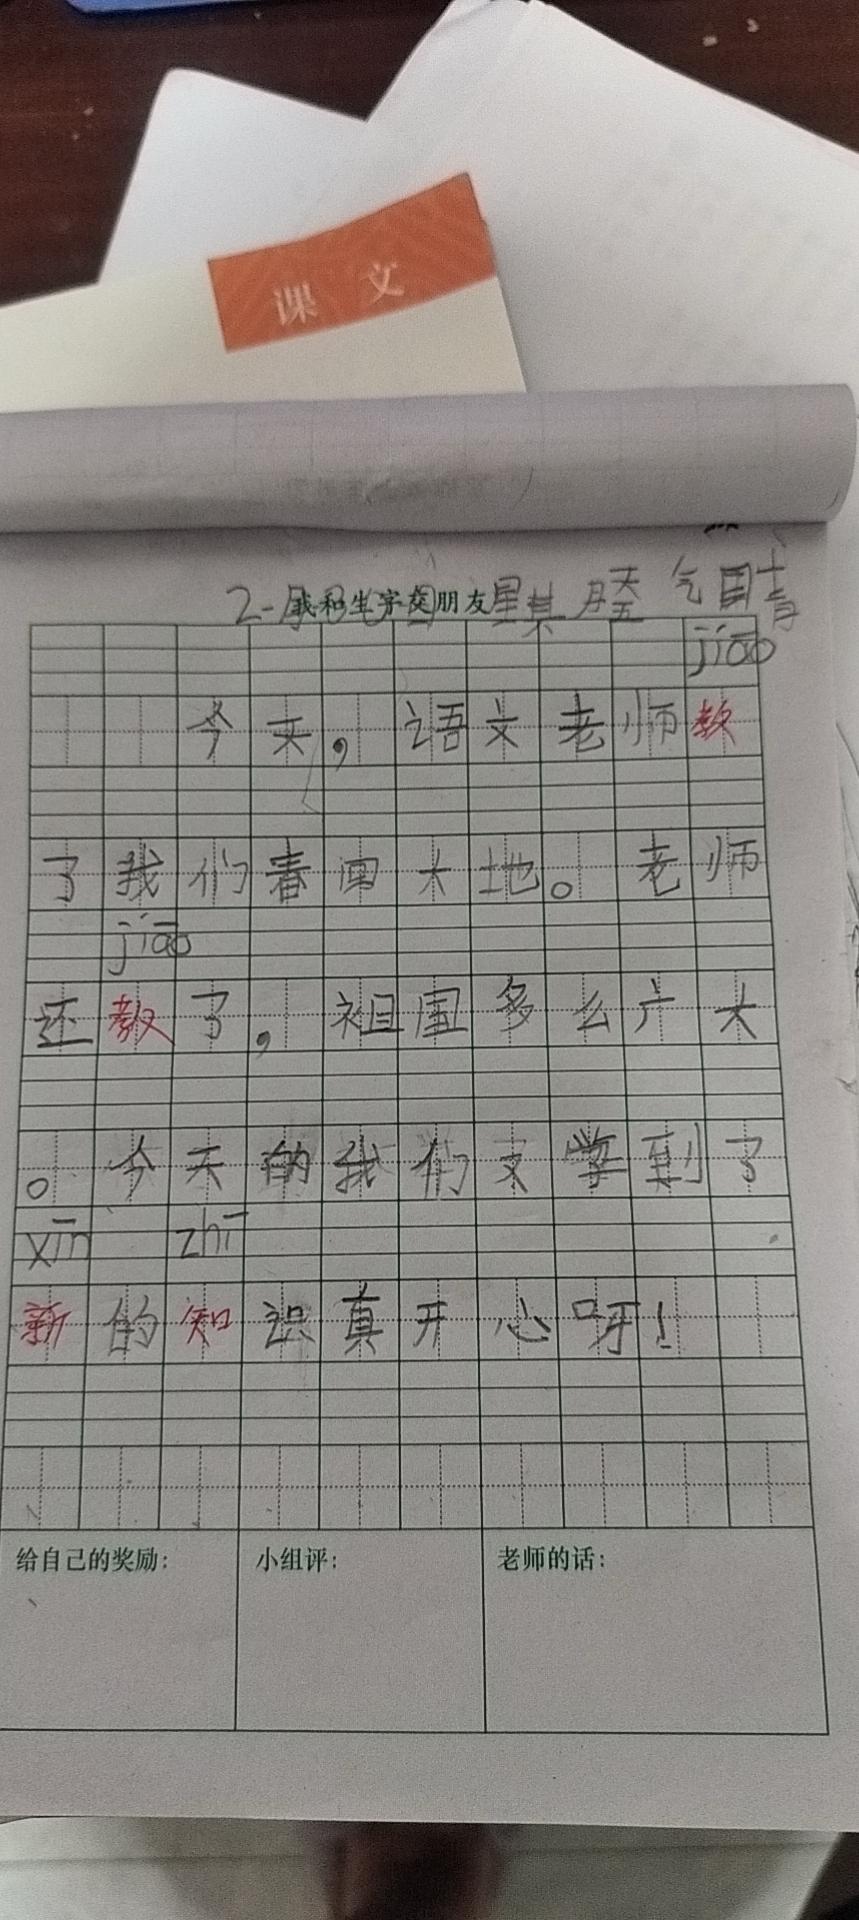 课文
2-月 日 星其 天 天气国晴
我和生字交朋友
jiāo
今天，语文老师教
了我们春回大地。老师
jiāo
还教了，祖国多么广大
。今天的我们又学到了
xīn zhī
新的知识真开心呀！
给自己的奖励： 小组评： 老师的话：